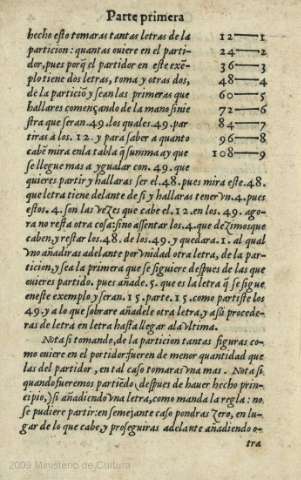 Parte primera
hecho esto tomaras tantas letras de la
particion: quantas ouiere en el parti-
dor, pues porq̃ el partidor en este exẽ-
plo tiene dos letras, toma y otras dos,
de la particiõ y sean las primeras que
hallares començando de la mano sinie
stra que seran .49. los quales .49. par
tiras a los .12. y para saber a quanto
cabẽ mira en la tabla q̃ summa ay que
se llegue mas a ygualar con .49. que
12—1
24—2
36—3
48—4
60—5
72—6
84—7
96—8
108—9
quieres partir y hallaras ser el .48. pues mira este .48.
que letra tiene delante de si y hallaras tener vn .4. pues
estos .4. son las vezes que cabe el .12. en los .49. ago-
ra no resta otra cosa: sino assentar los .4. que dezimos que
caben, y restar los .48. de los .49. y quedara .1. al qual
vno añadiras adelante por vnidad otra letra, de la par-
ticion, y sea la primera que se siguiere despues de las que
ouieres partido. pues añade .5. que es la letra q̃ se sigue
en este exemplo y seran .15. parte .15. como partiste los
49. y a lo que sobrare añadele otra letra, y assi procede-
ras de letra en letra hasta llegar al a vltima.
Nota si tomando, de la particion tantas figuras co-
mo ouiere en el partidor. fueren de menor quantidad que
las del partidor, en tal caso tomaras vna mas. Nota si
quando fueremos partiẽdo (despues de hauer hecho prin-
cipio,) si añadiendo vna letra, como manda la regla: no
se pudiere partir: en semejante caso pondras zero, en lu-
gar de lo que cabe, y proseguiras adelante añadiendo o-
tra
2009 Ministerio de Cultura